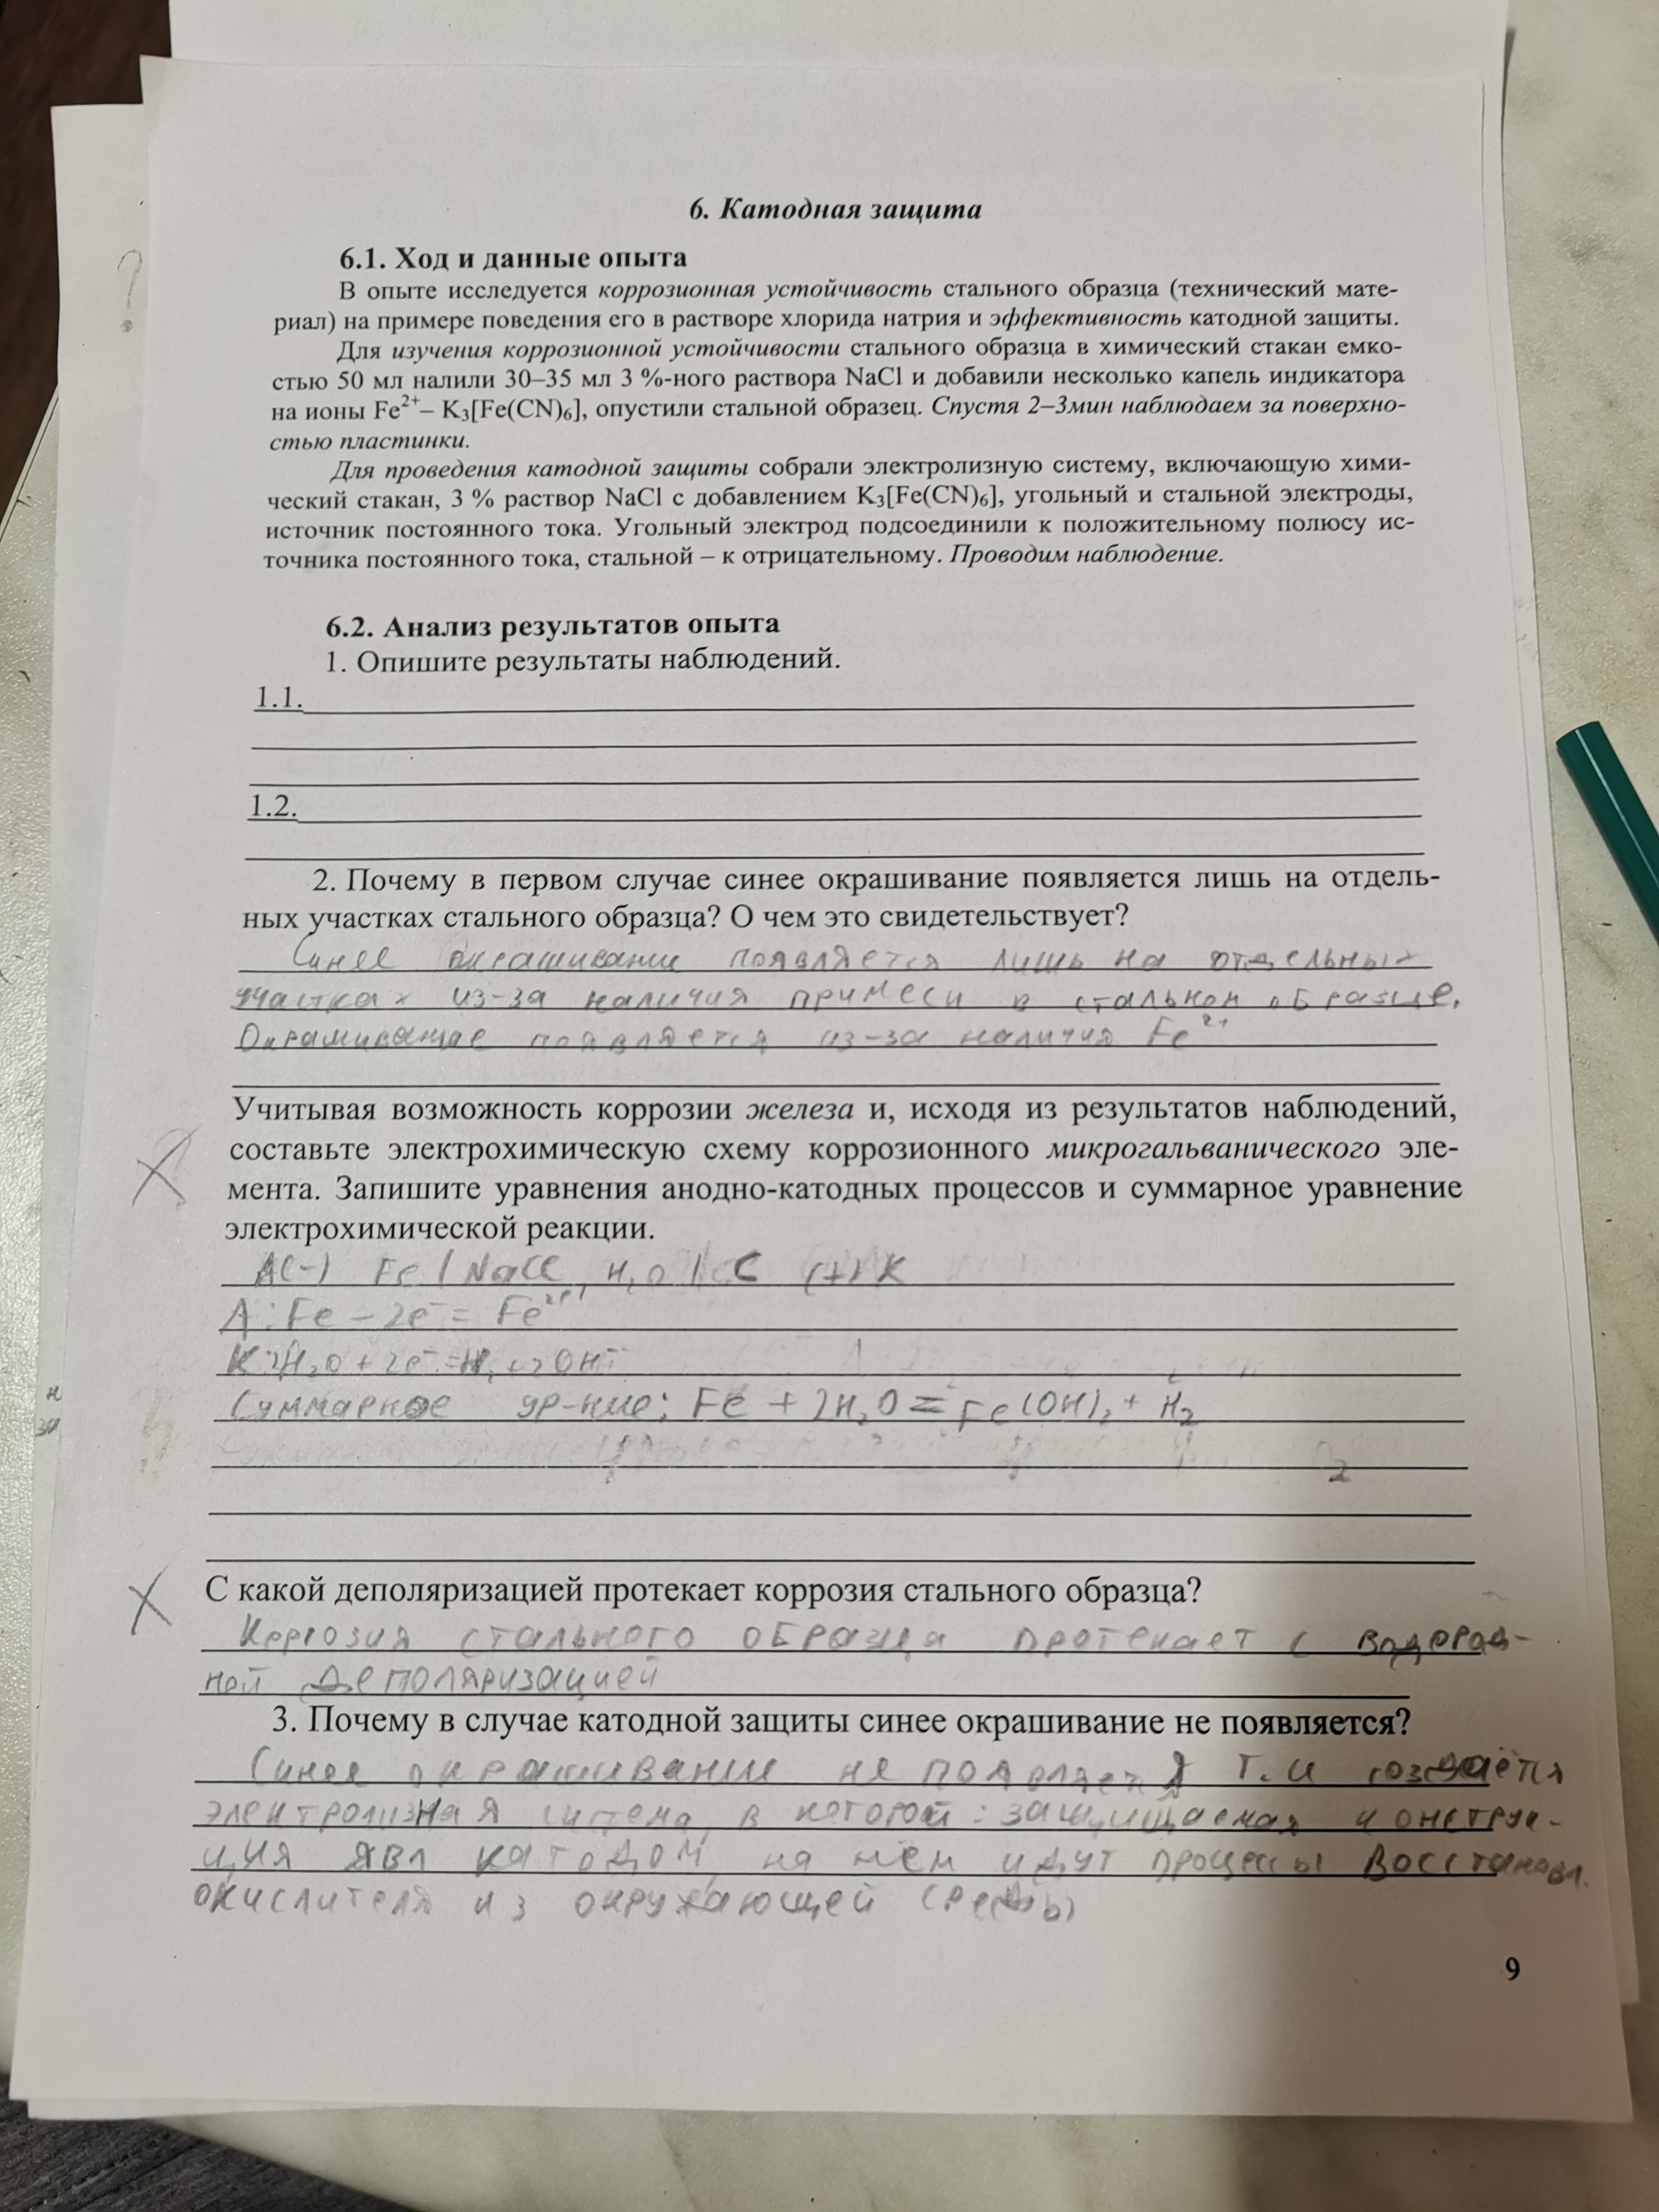 6. Катодная защита
6.1. Ход и данные опыта
В опыте исследуется коррозионная устойчивость стального образца (технический мате-
риал) на примере поведения его в растворе хлорида натрия и эффективность катодной защиты.
Для изучения коррозионной устойчивости стального образца в химический стакан емко-
стью 50 мл налили 30–35 мл 3 %-ного раствора NaCl и добавили несколько капель индикатора
на ионы Fe²⁺– K₃[Fe(CN)₆], опустили стальной образец. Спустя 2–3мин наблюдаем за поверхно-
стью пластинки.
Для проведения катодной защиты собрали электролизную систему, включающую хими-
ческий стакан, 3 % раствор NaCl с добавлением K₃[Fe(CN)₆], угольный и стальной электроды,
источник постоянного тока. Угольный электрод подсоединили к положительному полюсу ис-
точника постоянного тока, стальной – к отрицательному. Проводим наблюдение.
6.2. Анализ результатов опыта
1. Опишите результаты наблюдений.
1.1.
1.2.
2. Почему в первом случае синее окрашивание появляется лишь на отдель-
ных участках стального образца? О чем это свидетельствует?
Синее окрашивание появляется лишь на отдельных
участках из-за наличия примеси в стальном образце.
Окрашивание появляется из-за наличия Fe²⁺
Учитывая возможность коррозии железа и, исходя из результатов наблюдений,
составьте электрохимическую схему коррозионного микрогальванического эле-
мента. Запишите уравнения анодно-катодных процессов и суммарное уравнение
электрохимической реакции.
A(-) Fe | NaCl, H₂O | C (+) K
A: Fe - 2e⁻ = Fe²⁺
K: 2H₂O + 2e⁻ = H₂ + 2OH⁻
Суммарное ур-ние: Fe + 2H₂O = Fe(OH)₂ + H₂
2
С какой деполяризацией протекает коррозия стального образца?
Коррозия стального образца протекает с водород-
ной деполяризацией
3. Почему в случае катодной защиты синее окрашивание не появляется?
Синее окрашивание не появляется т.к создаётся
электролизная система, в которой: защищаемая конструк-
ция явл катодом, на нём идут процессы восстановл.
окислителя из окружающей среды
9